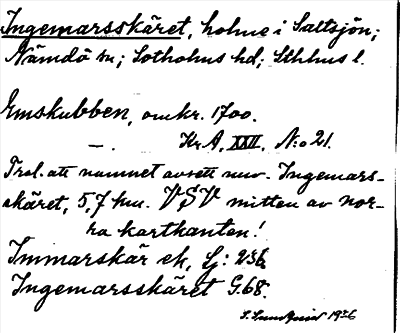 Ingemarsskäret, holme i Saltsjön;
Nämdö sn; Sotholms hd; Sthlms l.
Emskubben, omkr. 1700.
—. Kr.A, XXII, N:o 21.
Trol. att namnet avsett nuv. Ingemars-
skäret, 5,7 km. VSV mitten av nor-
ra kartkanten!
Immarskär ek, Gj: 236
Ingemarsskäret G.68.
1936